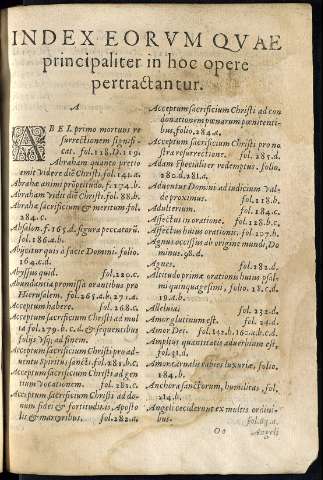 INDEX EORVM QVAE
principaliter in hoc opere
pertractantur.
A
ABEL primo mortuus re
surrectionem signifi-
cat. fol.118.D.119.
Abraham quanto pretio
emit videre diē Christi. fol.141.a.
Abrahæ animi propositū. f.174.b.
Abraham vidit diē Christi. fol.88.b.
Abrahæ sacrificium & meritum fol.
284.c.
Absalon. f.165.d. figura peccatorū.
fol.186.a.b.
Abijcitur quis à facie Domini. folio.
164.c.d.
Abyssus quid. fol.220.c.
Abundantia promissa orantibus pro
Hierusalem. fol.265.a.b.271.a.
Acceptum habere. fol.268.c.
Acceptum sacrificium Christi ad mul
ta fol.279.b.c.d. & sequentibus
folijs vsq; ad finem.
Acceptum sacrificium Christi pro ad-
uentu Spiritus sancti. fol.281.b.c.
Acceptum sacrificium Christi ad gen
tium vocationem. fol.281.c.
Acceptum sacrificium Christi ad do-
num fidei & fortitudinis Aposto
lis & martyribus. fol.282.a.
Acceptum sacrificium Christi ad con
donationem pœnarum pœnitenti-
bus, folio.284.a.
Acceptum sacrificium Christi pro no
stra resurrectione. fol.285.d.
Adam specialiter redemptus. folio.
280.d.281.a.
Aduentus Domini ad iudicium val-
de proximus. fol.218.b.
Adulterium. fol.184.c.
Affectus in oratione. fol.228.b.c.
Affectus huius orationis. fol.227.b.
Agnus occisus ab origine mundi, Do
minus.98.d.
Agnes. fol.182.d.
Altitudo primæ orationis huius psal-
mi quinquagesimi, folio.18.c.d.
19.a.b.
Alleluia. fol.232.d.
Amor gulatinum est. fol.24.d.
Amor Dei. fol.142.b.162.a.b.c.d.
Amplius quantitatis aduerbium est,
fol.31.d.
Amor carnalis rabies luxuriæ, folio,
184.b.
Anchora sanctorum, humilitas, fol.
214.b.
Angeli ceciderunt ex multis ordini-
bus. fol.62.a.
Oo Angeli